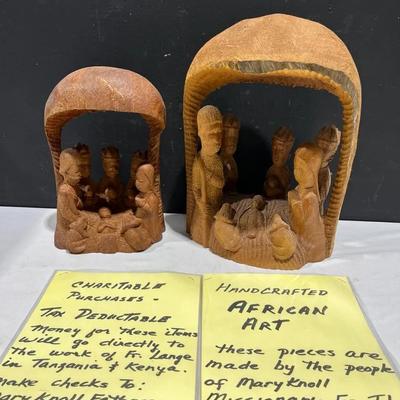 CHARITABLE
PURCHASES -
TAX DEDUCTABLE
Money for these items
will go directly to
the work of Fr. Lange
in Tanzania & Kenya.
Make checks to:
Mary Knoll Fathers
HANDCRAFTED
AFRICAN
ART
these pieces are
made by the people
of Mary Knoll
Missionary Fr.